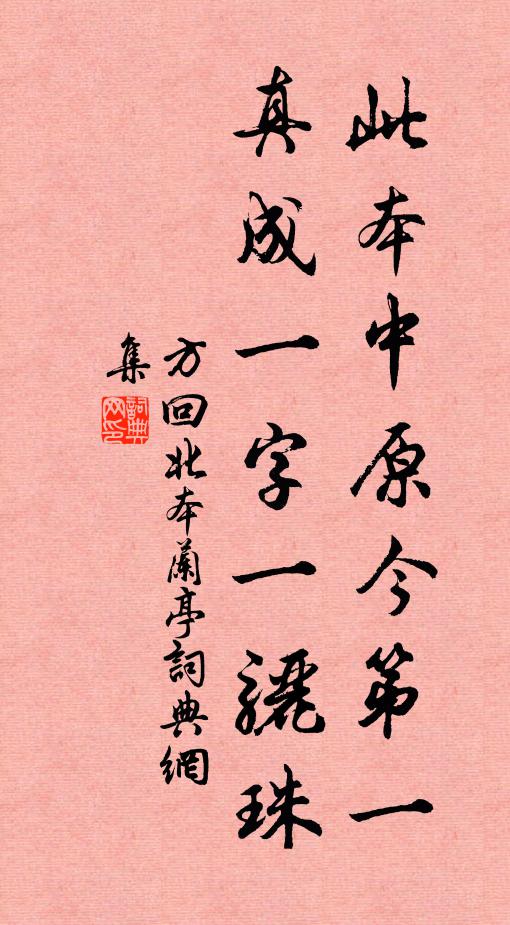 此本中原今第一
真成一字一驪珠
方回北本蘭亭詞典網
集
詞典
网印